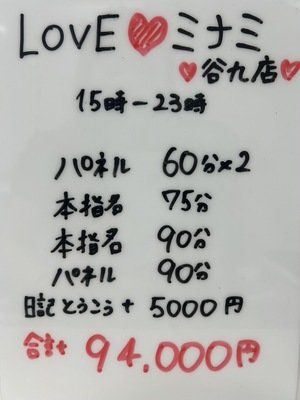 LOVE♥ミナミ
♥谷九店♥
15時-23時
パネル 60分×2
本指名 75分
本指名 90分
パネル 90分
日記とうこう+ 5000円
合計 94.000円